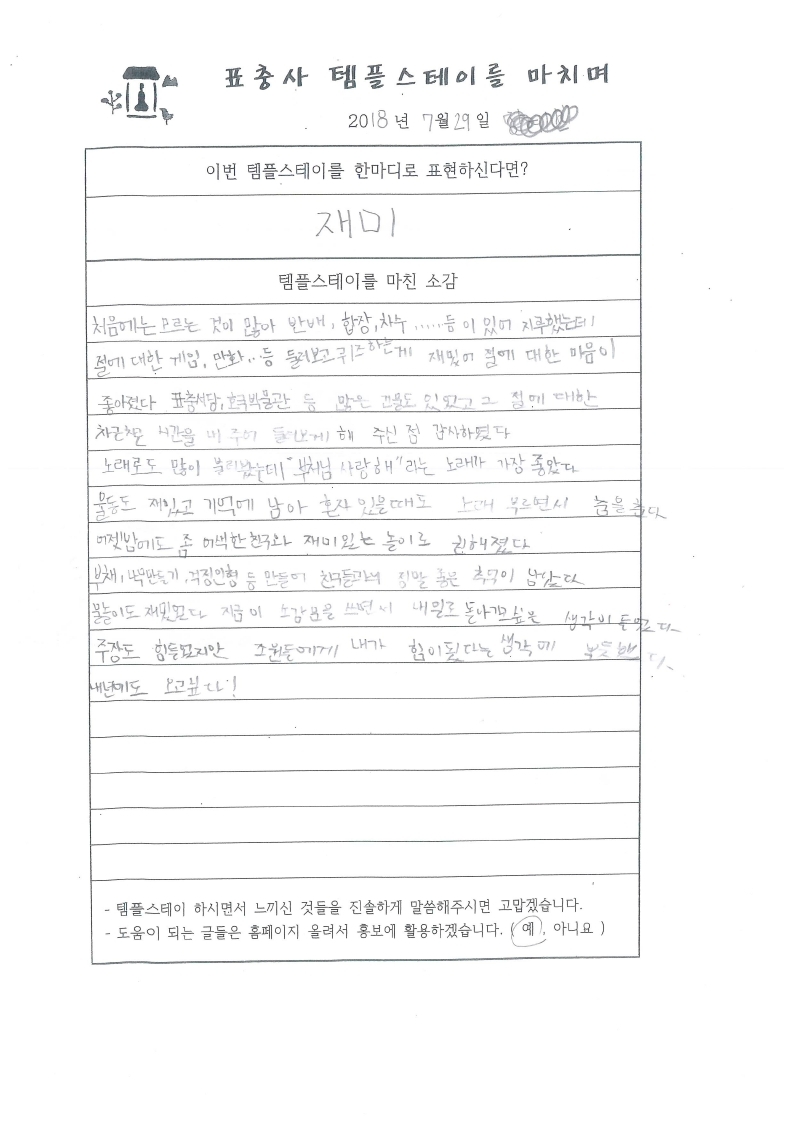 표충사 템플스테이를 마치며
2018년 7월 29일
이번 템플스테이를 한마디로 표현하신다면?
재미
템플스테이를 마친 소감
처음에는 모르는 것이 많아 반배, 합장, 차수 ......등이 있어 지루했는데
절에 대한 게임, 만화...등 둘러보고 퀴즈하는게 재밌어 절에 대한 마음이
좋아졌다 표충서당, 호국박물관 등 많은 건물도 있었고 그 절에 대한
시간을 내 주어 해 주신 점 감사하였다
노래로도 많이 불러봤는데 "부처님 사랑해"라는 노래가 가장 좋았다
율동도 재밌고 기억에 남아 혼자 있을때도 노래 부르면서 춤을 춘다
어젯밤에도 좀 어색한 친구와 재미있는 놀이로 친해졌다
부채, 만들기, 걱정인형 등 만들어 친구들과의 정말 좋은 추억이 남았다
물놀이도 재밌었다 지금 이 소감문을 쓰면서 내일로 돌아가고싶은 생각이 들었다
주장도 힘들었지만 조원들에게 내가 힘이된다는 생각에 뿌듯했다
내년에도 오고싶다!
- 템플스테이 하시면서 느끼신 것들을 진솔하게 말씀해주시면 고맙겠습니다.
- 도움이 되는 글들은 홈페이지 올려서 홍보에 활용하겠습니다. ( 예 , 아니요 )